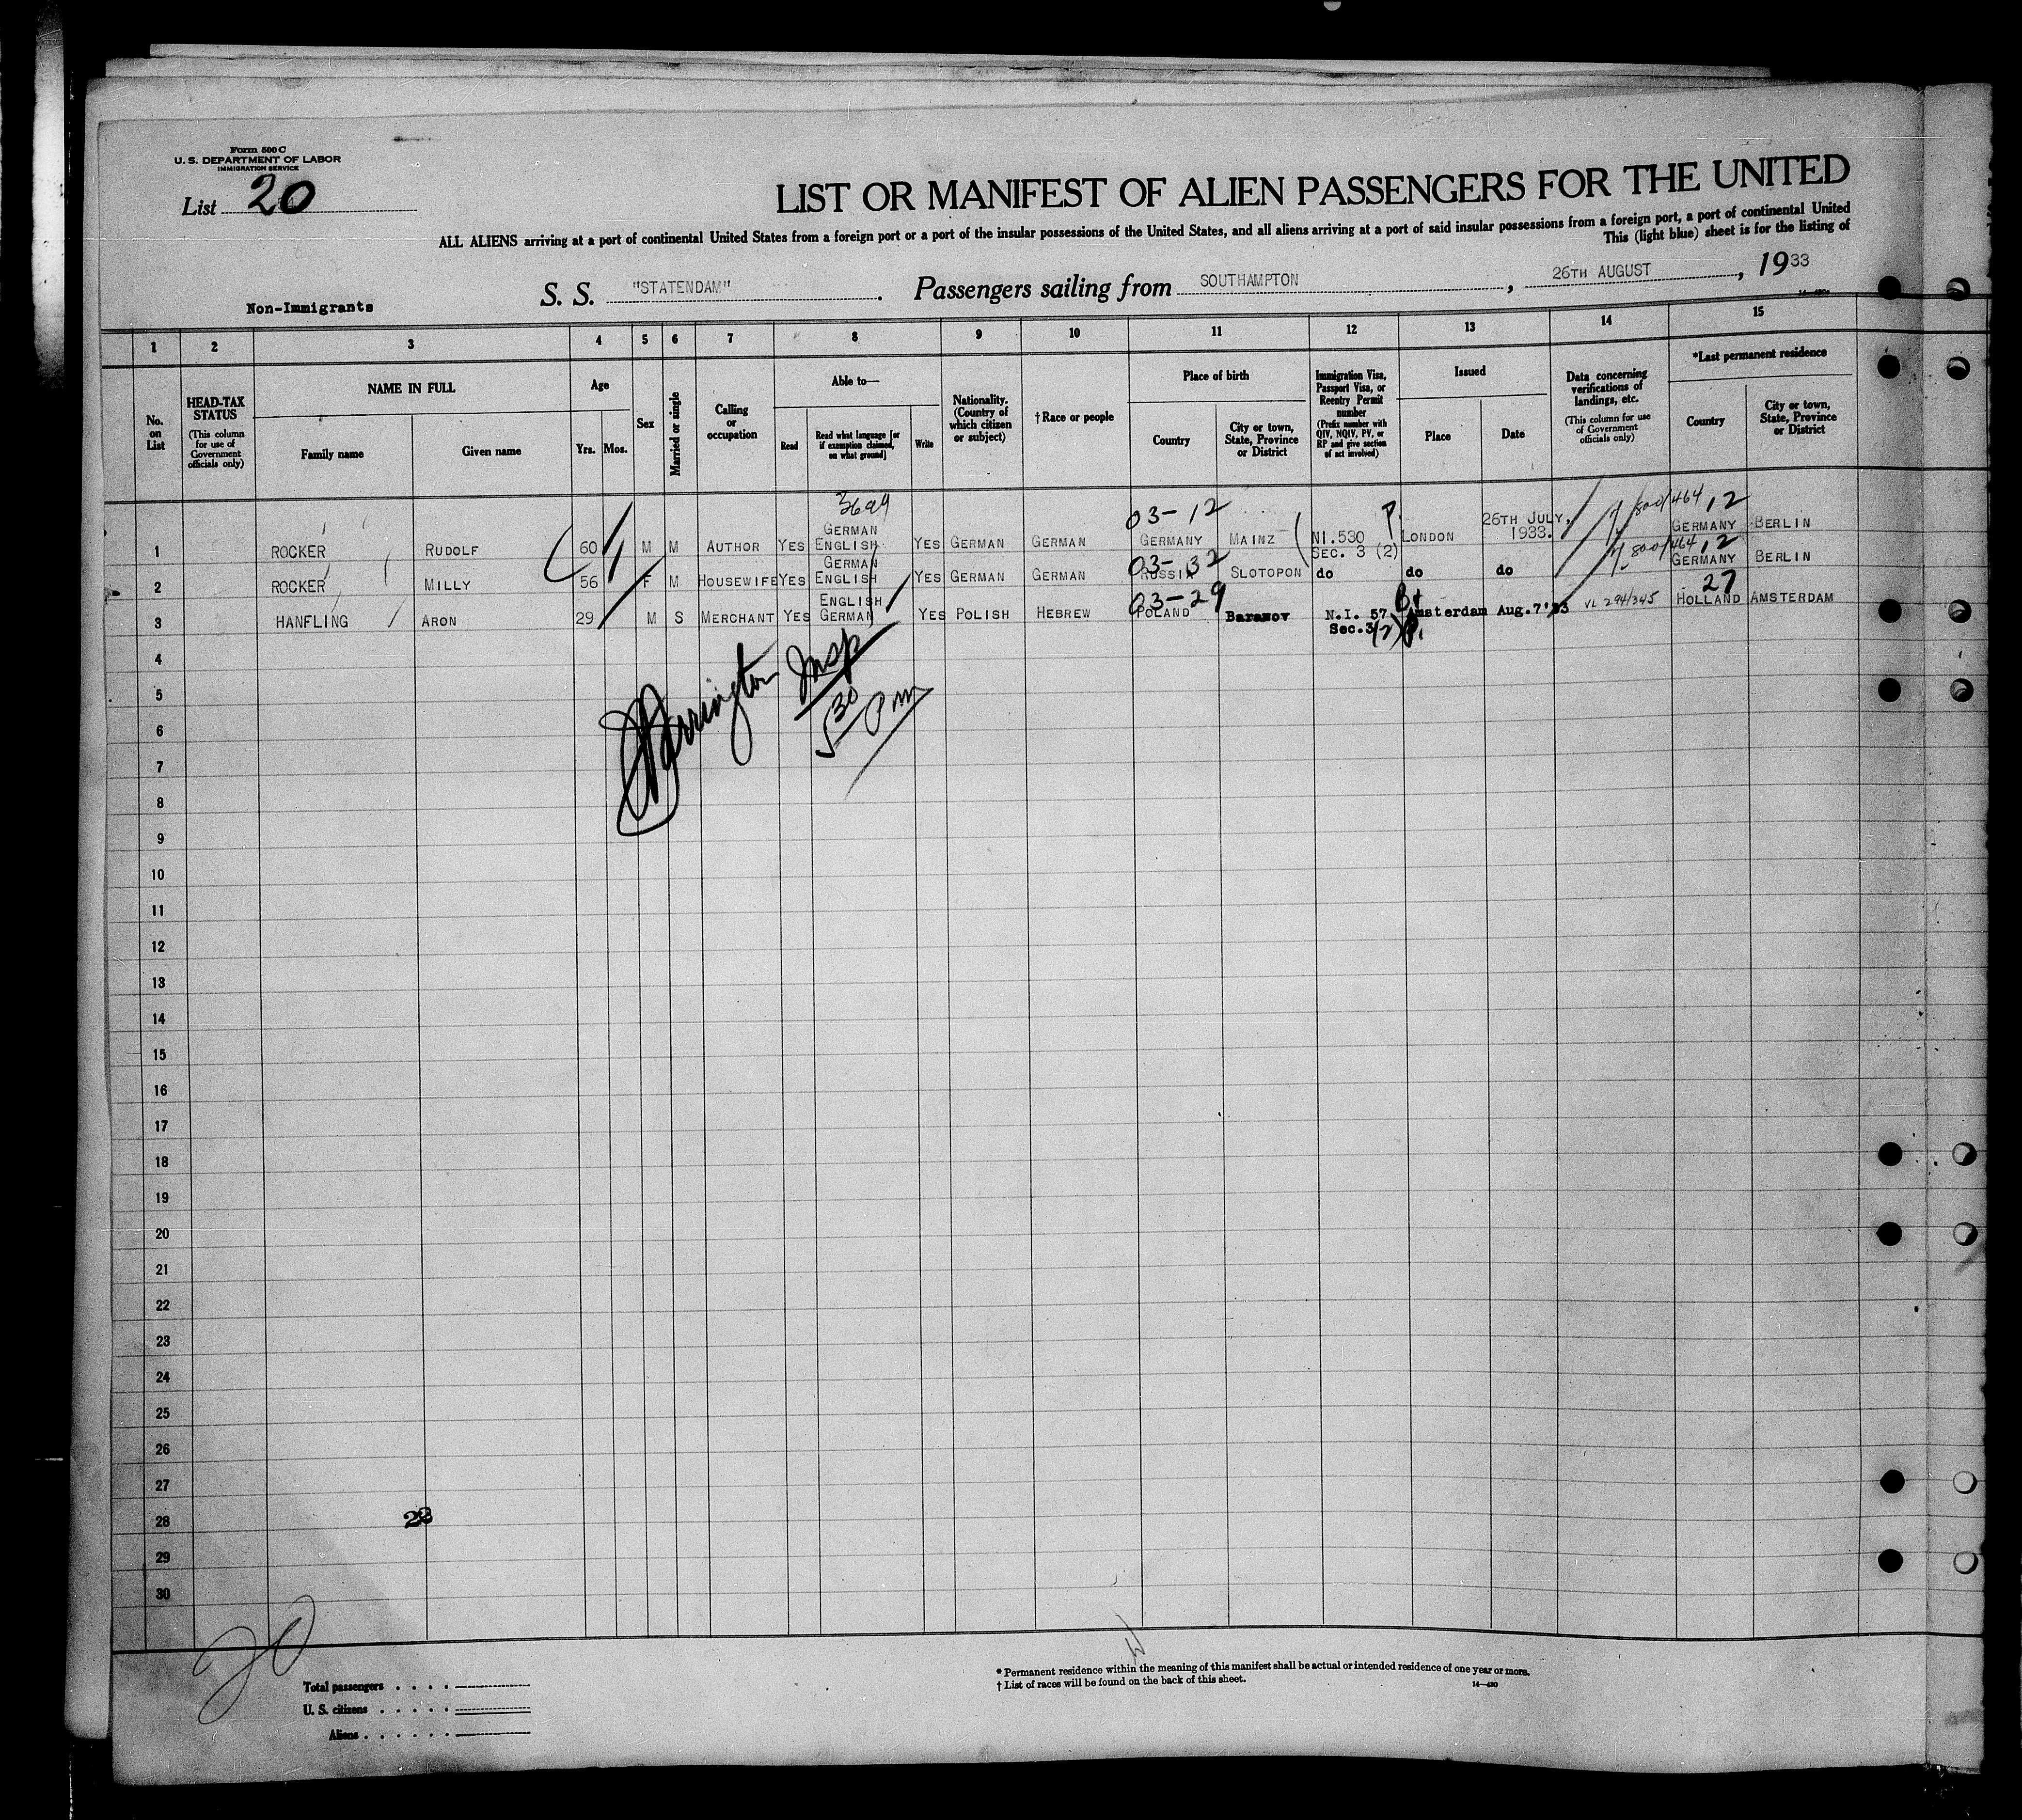 Form 500 C
U. S. DEPARTMENT OF LABOR
IMMIGRATION SERVICE
List 20
LIST OR MANIFEST OF ALIEN PASSENGERS FOR THE UNITED
ALL ALIENS arriving at a port of continental United States from a foreign port or a port of the insular possessions of the United States, and all aliens arriving at a port of said insular possessions from a foreign port, a port of continental United
This (light blue) sheet is for the listing of
Non-Immigrants
S. S. "STATENDAM". Passengers sailing from SOUTHAMPTON, 26TH AUGUST, 1933
14—430
1 2 3 4 5 6 7 8 9 10 11 12 13 14 15
No. on List
HEAD-TAX STATUS (This column for use of Government officials only)
NAME IN FULL
Family name
Given name
Age
Yrs. Mos.
Sex
Married or single
Calling or occupation
Able to—
Read
Read what language [or if exemption claimed, on what ground]
Write
Nationality. (Country of which citizen or subject)
† Race or people
Place of birth
Country
City or town, State, Province or District
Immigration Visa, Passport Visa, or Reentry Permit number (Prefix number with QIV, NQIV, PV, or RP and give section of act involved)
Issued
Place
Date
Data concerning verifications of landings, etc. (This column for use of Government officials only)
*Last permanent residence
Country
City or town, State, Province or District
03-12 P. 7-800/464 12
1 ROCKER RUDOLF 60 M M AUTHOR YES GERMAN ENGLISH YES GERMAN GERMAN GERMANY MAINZ NI.530 SEC. 3 (2) LONDON 26TH JULY, 1933. GERMANY BERLIN
03-32 7-800/464 12
2 ROCKER MILLY 56 F M HOUSEWIFE YES GERMAN ENGLISH YES GERMAN GERMAN RUSSIA SLOTOPON do do do GERMANY BERLIN
03-29 27
3 HANFLING ARON 29 M S MERCHANT YES ENGLISH GERMAN YES POLISH HEBREW POLAND Baranov N.I. 57 Sec.3(2) Amsterdam Aug.7'33 VL 294/345 HOLLAND AMSTERDAM
4
Insp
5
530 Pm
6
7
8
9
10
11
12
13
14
15
16
17
18
19
20
21
22
23
24
25
26
27
28
29
30
20
Total passengers . . . .
U. S. citizens . . . . .
Aliens . . . . . .
* Permanent residence within the meaning of this manifest shall be actual or intended residence of one year or more.
† List of races will be found on the back of this sheet.
14—430